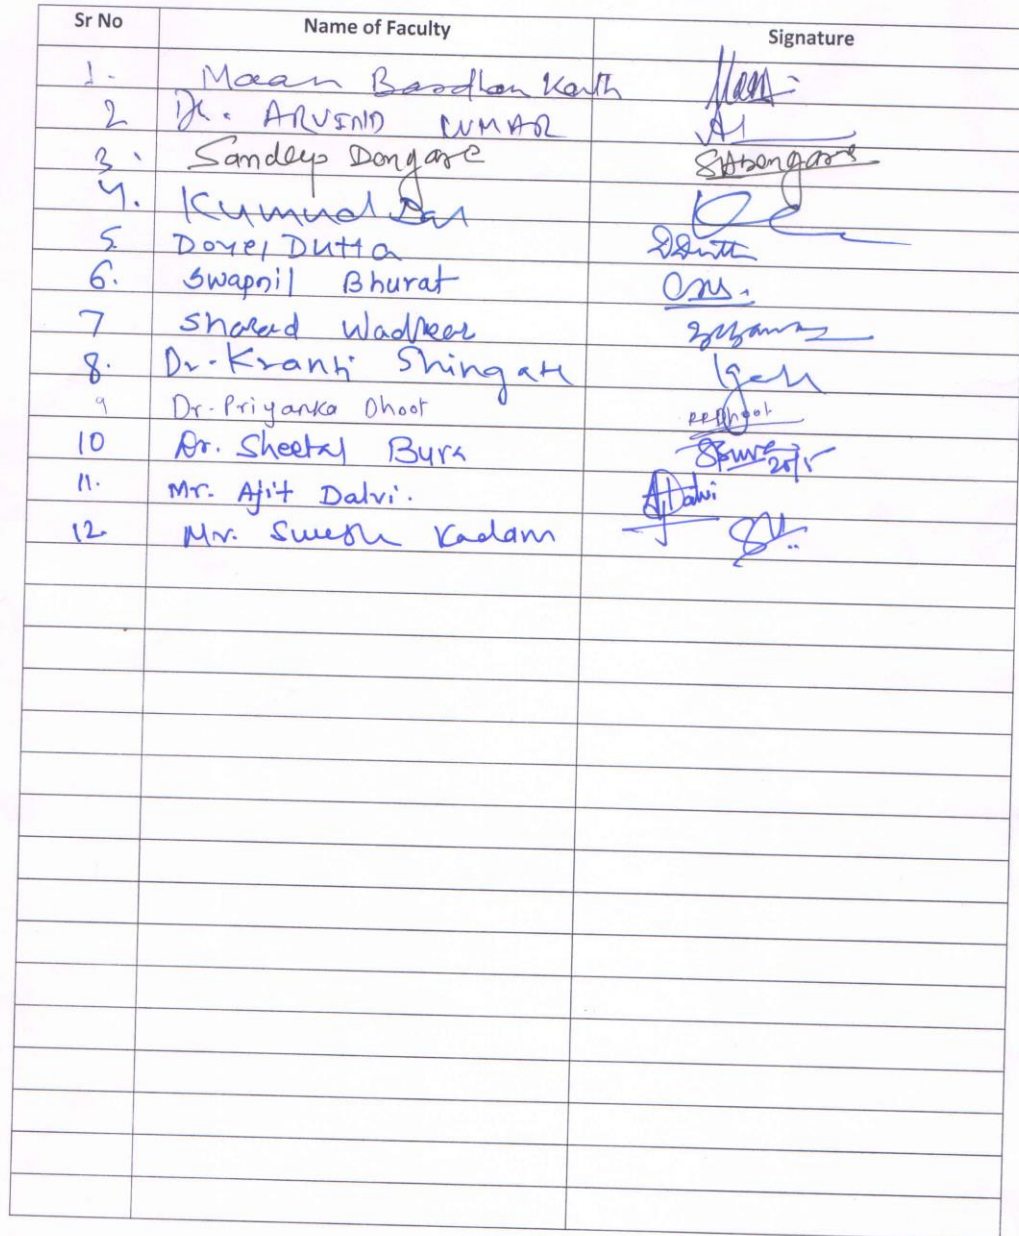 Sr No Name of Faculty Signature
1. Maan Bardhan Kanth
2 Dr. ARVIND KUMAR
3. Sandeep Dongare SADongare
4. Kumud Das
5. Doyel Dutta DDutta
6. Swapnil Bhurat
7 Sharad Wadkar
8. Dr. Kranti Shingate
9 Dr. Priyanka Dhoot PRDhoot
10 Dr. Sheetal Bura SBura 20/5
11. Mr. Ajit Dalvi. AjDalvi
12. Mr. Suresh Kadam